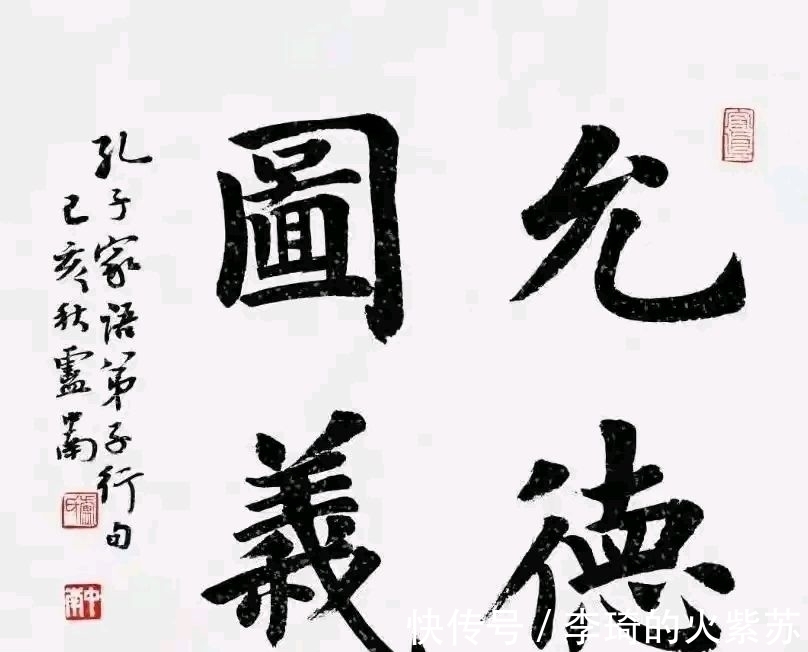 允德
圖義
孔子家語弟子行句
己亥秋盧中南
中南
快传号 / 李琦的火紫苏